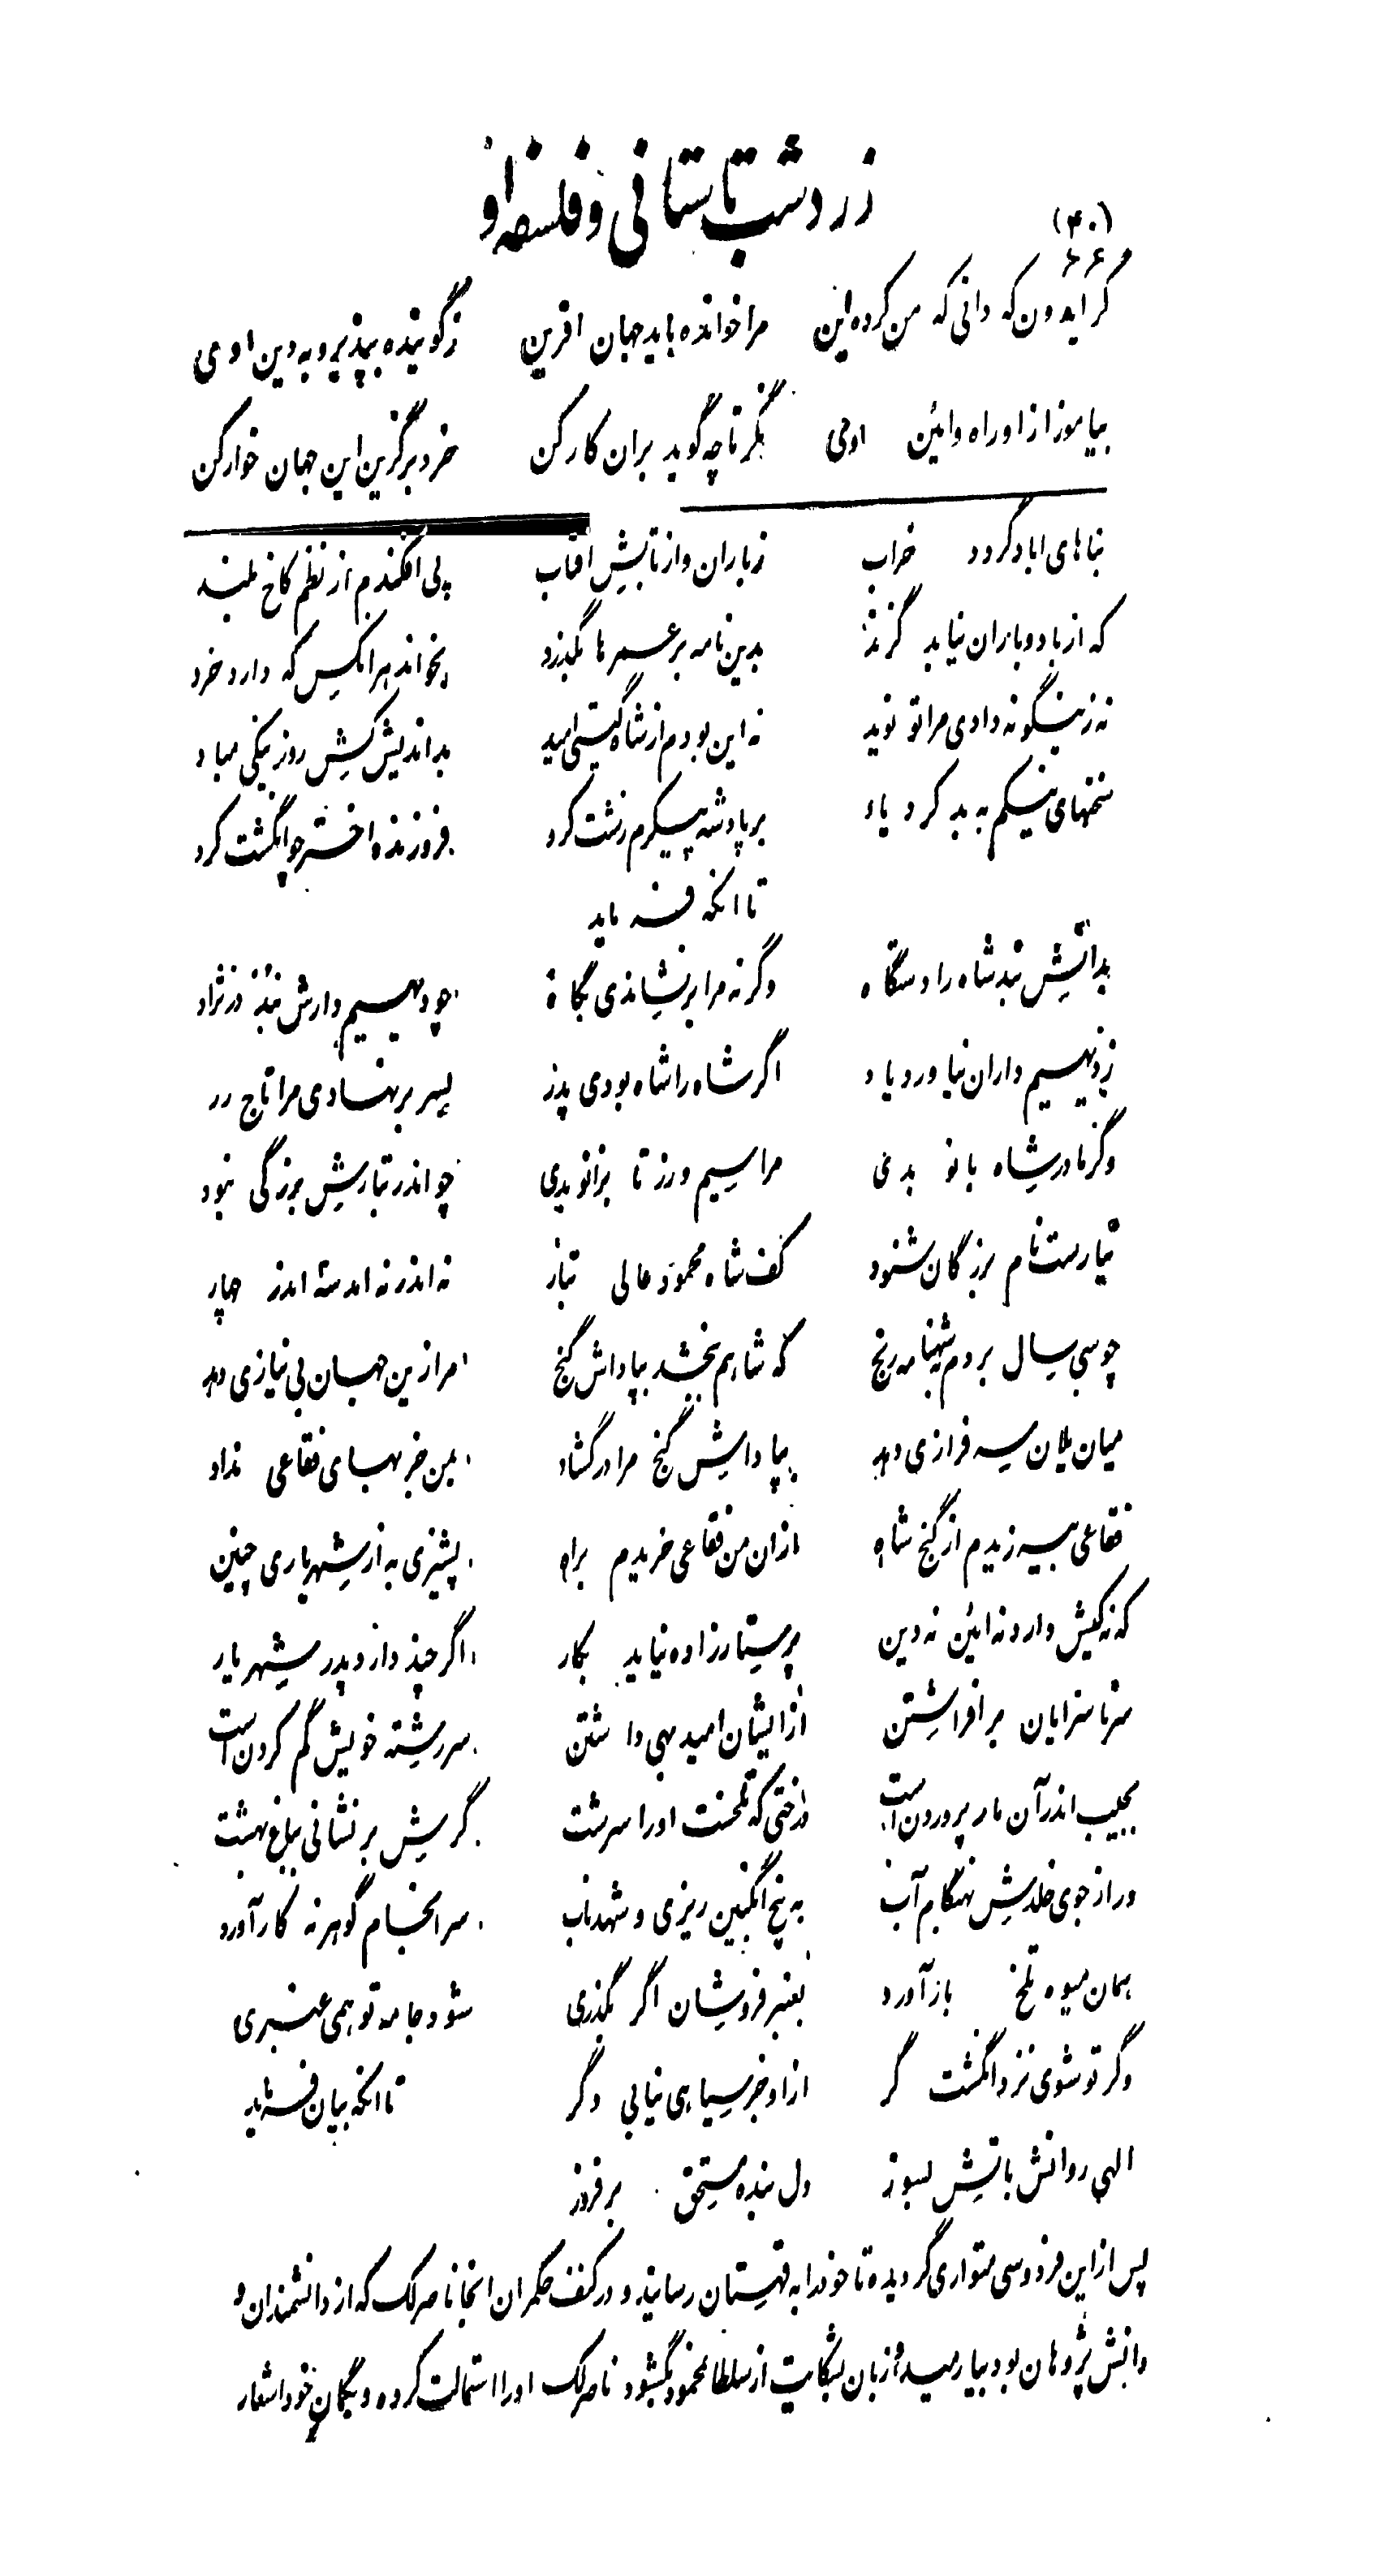 زردشت باستانی و فلسفه او
(۴۰)
گر ایدون که دانی که من کرده این مرا خوانده باید جهان افرین زگوینده بپذیرو به دین اوی
بیاموز از او راه و ائین اوی نگر تا چه گوید بران کار کن خرد برگزین این جهان خوار کن
بناهای اباد گردد خراب زباران و از تابش افتاب پی افکندم از نظم کاخ بلند
که از باد و باران نیابد گزند بدین نامه بر عمرها بگذرد بخواند هر انکس که دارد خرد
نه زینگونه دادی مرا تو نوید نه این بودم از شاه گیتی امید بداندیش کش روز نیکی مباد
سخنهای نیکم به بد کرد یاد بر پادشه پیکرم زشت کرد فروزنده اختر چو انگشت کرد
تا انکه فرماید
بدانش نبد شاه را دستگاه وگرنه مرا برنشاندی بگاه چو دیهیم دارش نبد در نژاد
ز دیهیم داران نیاورد یاد اگر شاه را شاه بودی پدر بسر برنهادی مرا تاج زر
وگر مادر شاه بانو بدی مرا سیم و زر تا بزانو بدی چو اندر تبارش بزرگی نبود
نیارست نام بزرگان شنود کف شاه محمود عالی تبار نه اندر نه امد سه اندر چهار
چو سی سال بردم بشهنامه رنج که شاهم بخشد بپاداش گنج مرا زین جهان بی نیازی دهد
میان یلان سرفرازی دهد بپاداش گنج مرا در گشاد بمن جز بهای فقاعی نداد
فقاعی بیرزیدم از گنج شاه ازان من فقاعی خریدم براه پشیزی به از شهریاری چنین
که نه کیش دارد نه ائین نه دین پرستار زاده نیاید بکار اگر چند دارد پدر شهریار
سر ناسزایان برافراشتن از ایشان امید بهی داشتن سر رشته خویش گم کردن است
بجیب اندر آن مار پروردن است درختی که تلخست اورا سرشت گرش بر نشانی بباغ بهشت
ور از جوی خلدش بهنگام آب به بیخ انگبین ریزی و شهد ناب سرانجام گوهر نه کار آورد
همان میوه تلخ باز آورد بعنبر فروشان اگر بگذری شود جامه تو همی عنبری
وگر تو شوی نزد انگشت گر از او جز سیاهی نیابی دگر تا انکه بیان فرماید
الهی روانش باتش بسوز دل بنده مستحق برفروز
پس از این فردوسی متواری گردیده تا خود را به قهستان رسانید و در کنف حکمران انجا ناصرلک که از دانشمندان و
دانش پژوهان بود بیارمید و زبان بشکایت از سلطان محمود بگشود ناصرلک اورا استمالت کرده و بگمان خود اشعار